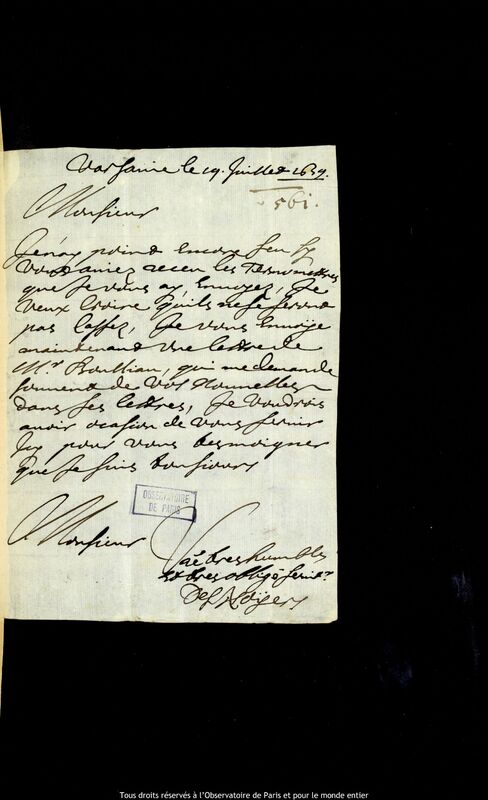 Varsauie le 19. Juillet 1659.
561.
Monsieur
Je n'ay point encore sceu sy
vous auiez receu les Termometres
que Je vous ay Enuoyez, Je
veux croire qu'ils ne se seront
pas cassez, Je vous Enuoÿe
maintenant vne lettre de
Mr. Boulliau, qui me demande
souuent de vos Nouuelles
dans ses lettres, Je voudrois
auoir ocasion de vous seruir
Icy pour vous tesmoigner
que Je suis tousiours
OBSERVATOIRE
DE PARIS
Monsieur
Vre tres humble
et tres obligé seruitr.
Des Noÿers
Tous droits réservés à l'Observatoire de Paris et pour le monde entier